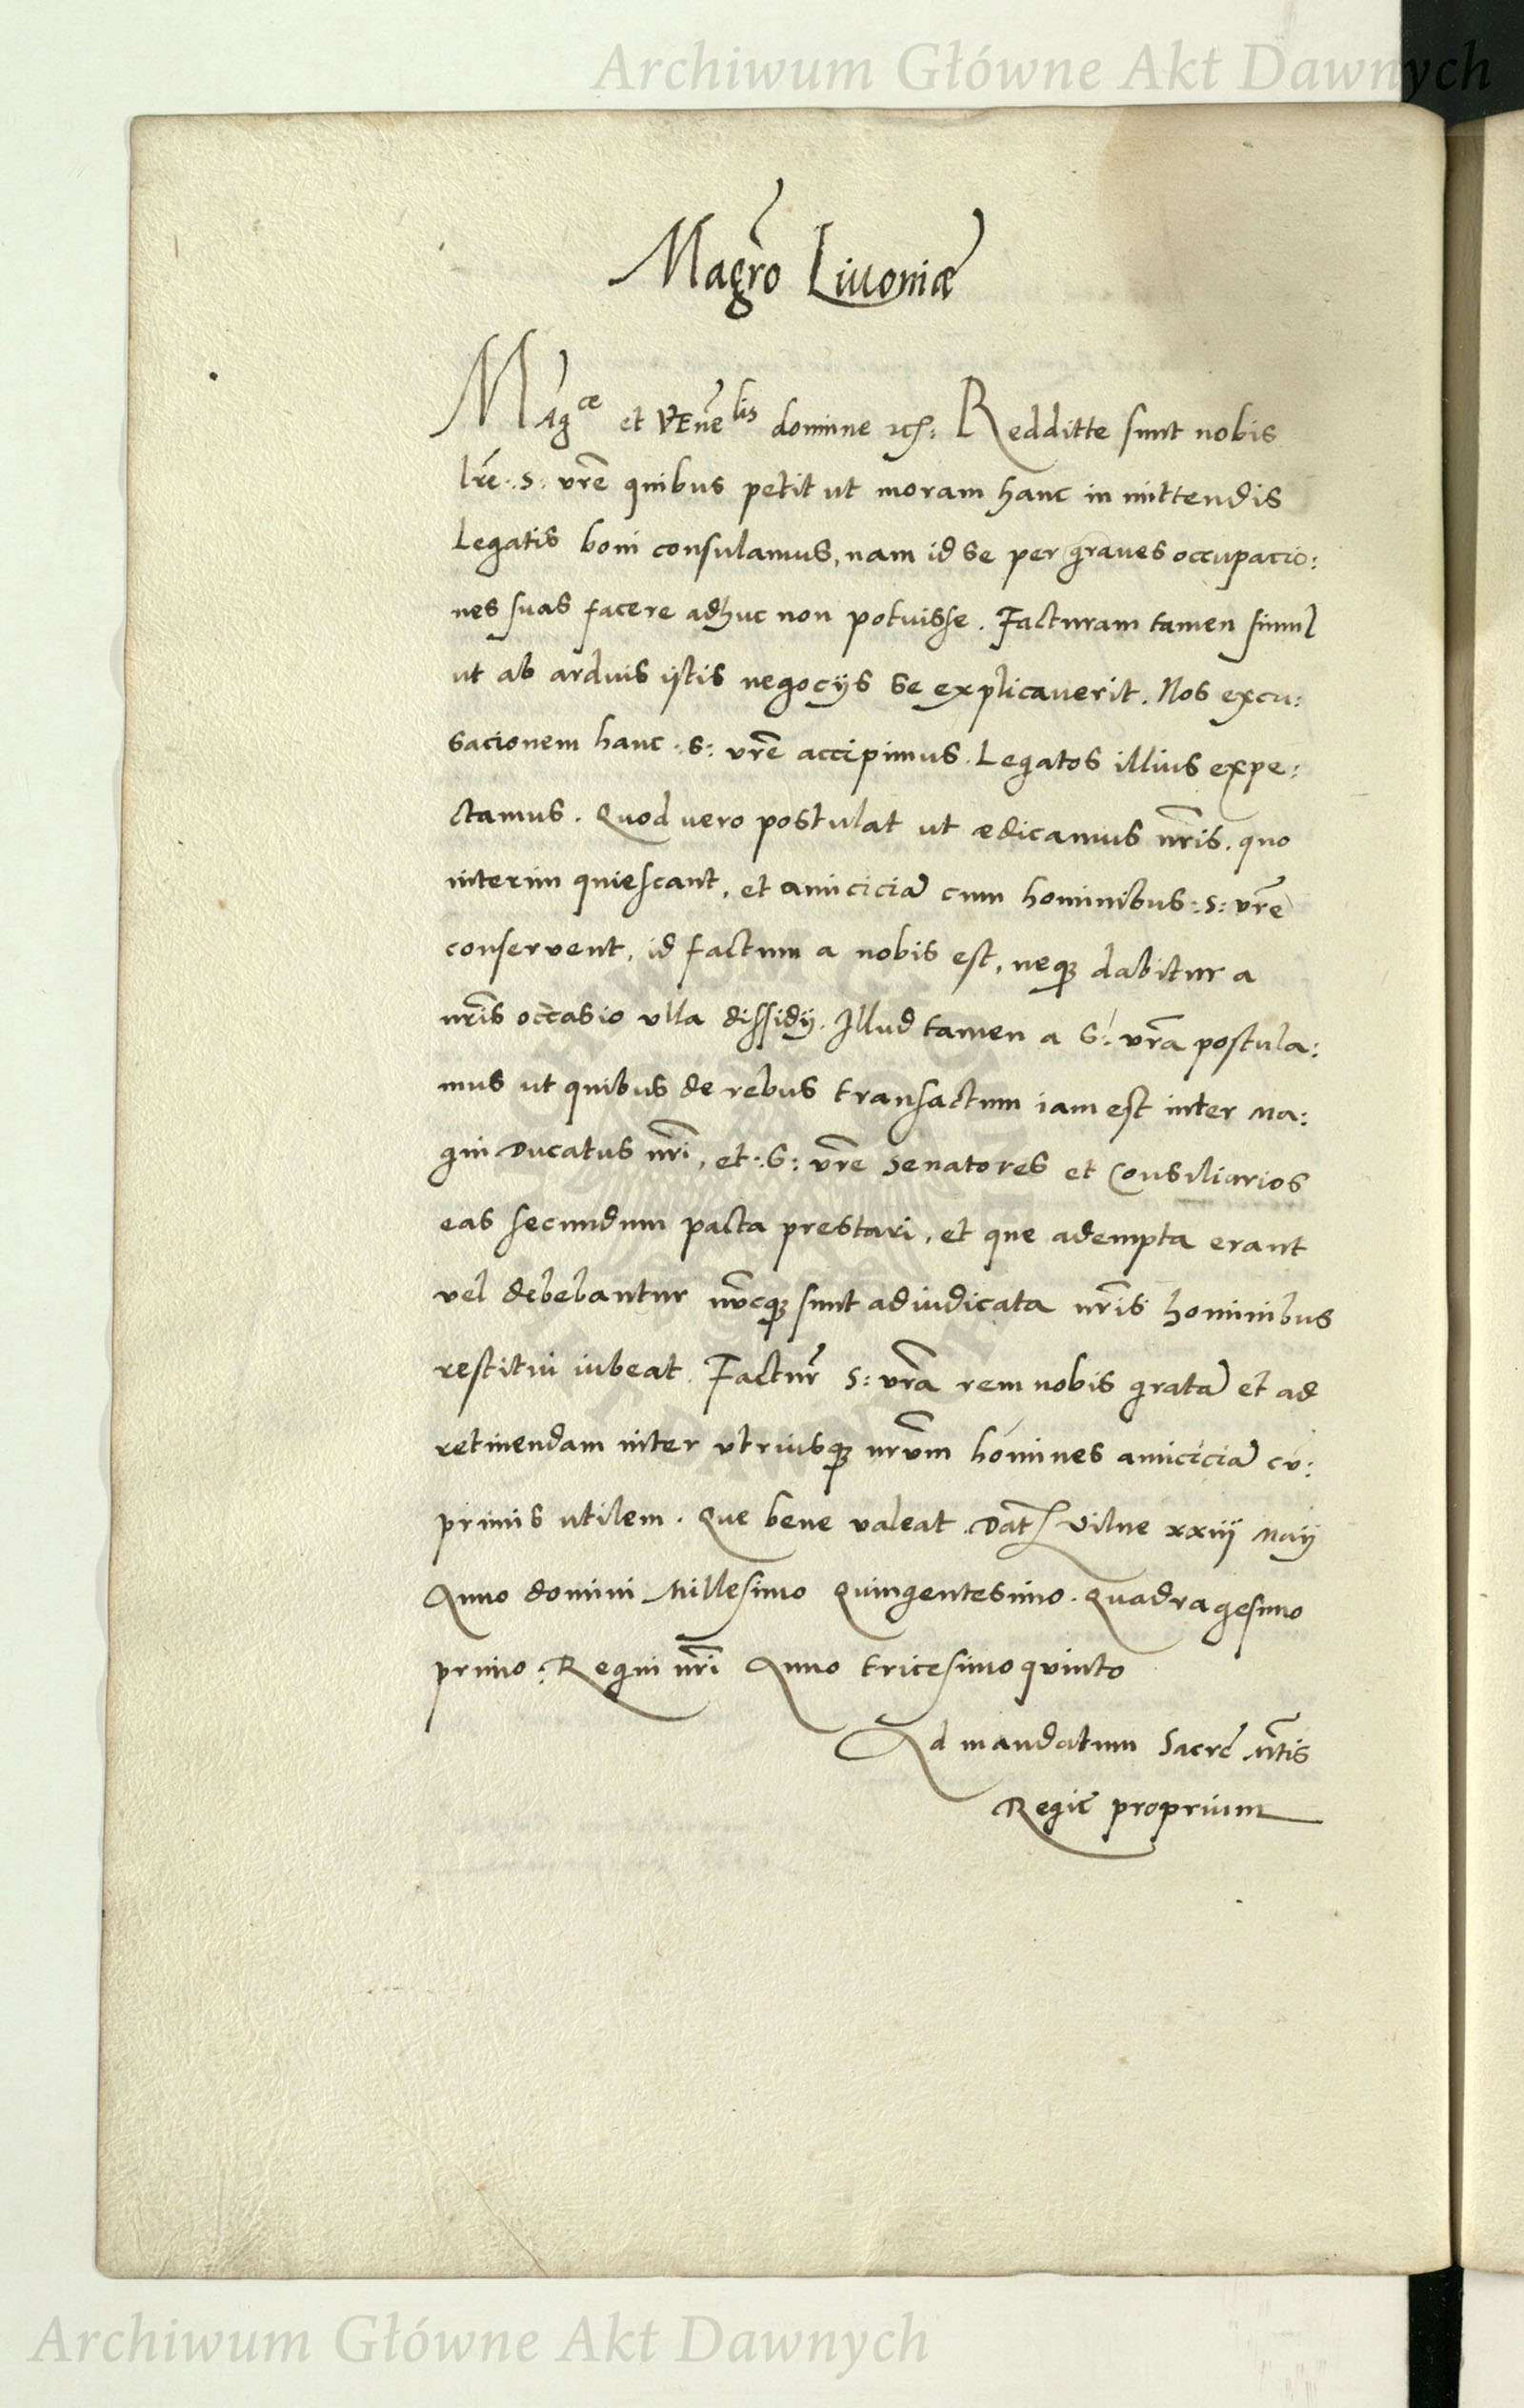 Archiwum Główne Akt Dawnych
Magr̃o Liuoniæ
Magce et VEnẽlis domine Redditte sunt nobis
lrẽ .S: vrẽ quibus petit ut moram hanc in mittendis
Legatis boni consulamus, nam id se per graues occupacio:
nes suas facere adhuc non potuisse. Facturam tamen simul
ut ab arduis ijstis negocijs se explicauerit. Nos excu:
sacionem hanc .S: vrẽ accipimus. Legatos illius expe:
ctamus. Quod uero postulat ut ædicamus nr̃is. quo
interim quiescant, et amiciciã cum hominibus :S: vrẽ
conseruent, id factum a nobis est, neqȝ dabitur a
nr̃is occasio vlla dissidij. Illud tamen a S: vrã postula:
mus ut quibus de rebus transactum iam est inter Ma:
gni Ducatus nr̃i, et .S: vrẽ Senatores et Consiliarios
eas secundum pacta prestari, et que adempta erant
vel debebantur nũcqȝ sunt adiudicata nr̃is hominibus
restitui iubeat. Facturr̃ S: vrã rem nobis gratã et ad
retinendam inter vtriusqȝ nr̃um homines amiciciã cũ:
primis utilem. Que bene valeat. Dat̃ Vilne xxiij Maij
Anno domini Millesimo Quingentesimo. Quadragesimo
primo: Regni nr̃i Anno tricesimo quinto
Ad mandatum Sacrẽ Mtis
Regiẽ proprium
Archiwum Główne Akt Dawnych